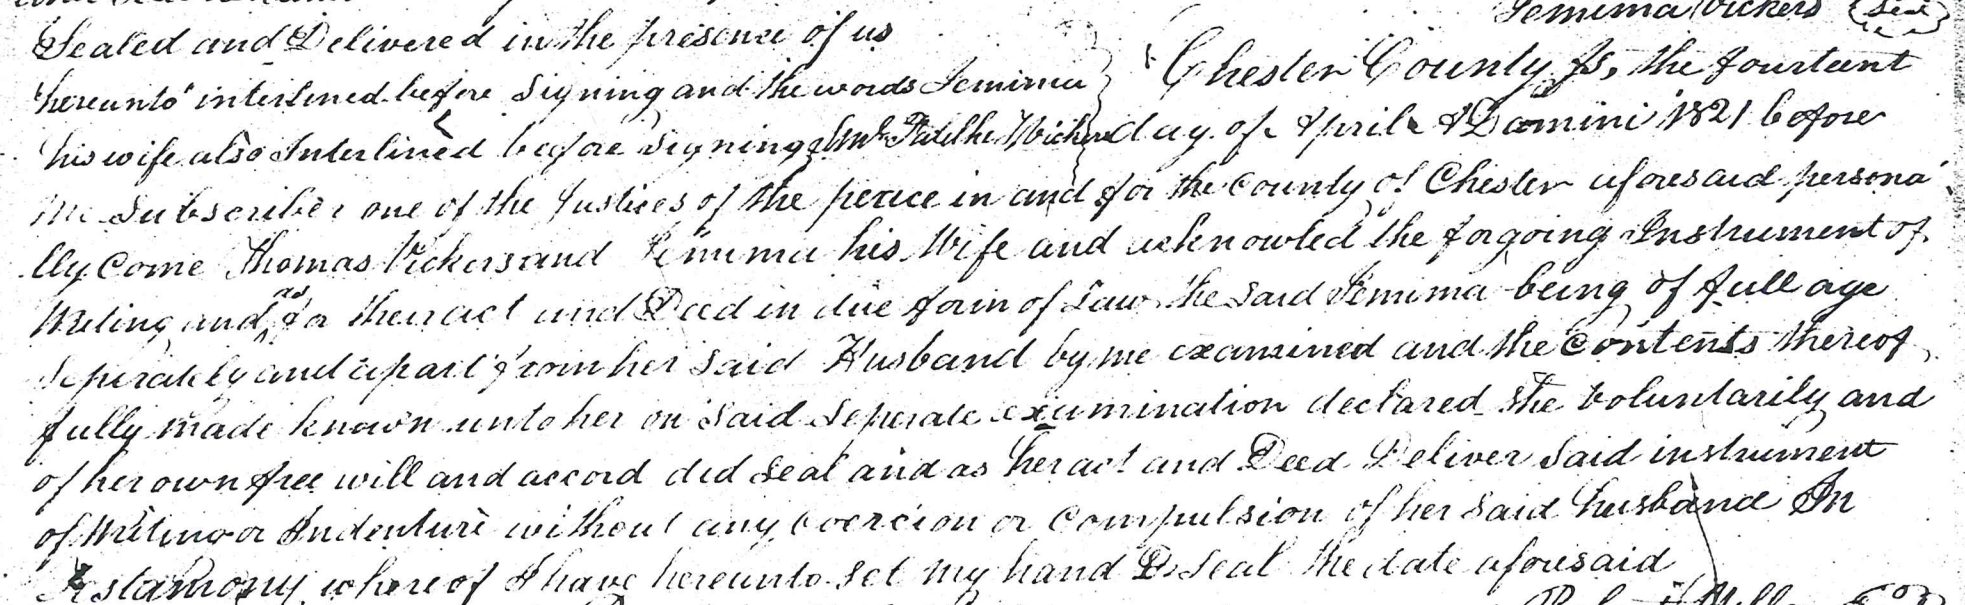 Jemima Vickers Seal
Sealed and Delivered in the presence of us
"hereunto" interlined before signing and the words Jemima } Chester County Ss, the fourteent
his wife also Interlined before signing day of April A Domini 1821 before
me Subscriber one of the Justices of the peace in and for the County of Chester aforesaid persona
lly Come Thomas Vickers and Jemima his Wife and acknowled the forgoing Instrument of
Writing and as for their act and Deed in due form of Law the said Jemima being of full age
Seperately and apart from her said Husband by me examined and the Contents thereof
fully made known unto her on said seperate examination declared she voluntarily and
of her own free will and accord did seal and as her act and Deed Deliver said instrument
of Writing or Indenture without any Coercion or Compulsion of her said husband In
Testamony whereof I have hereunto set my hand & Seal the date aforesaid